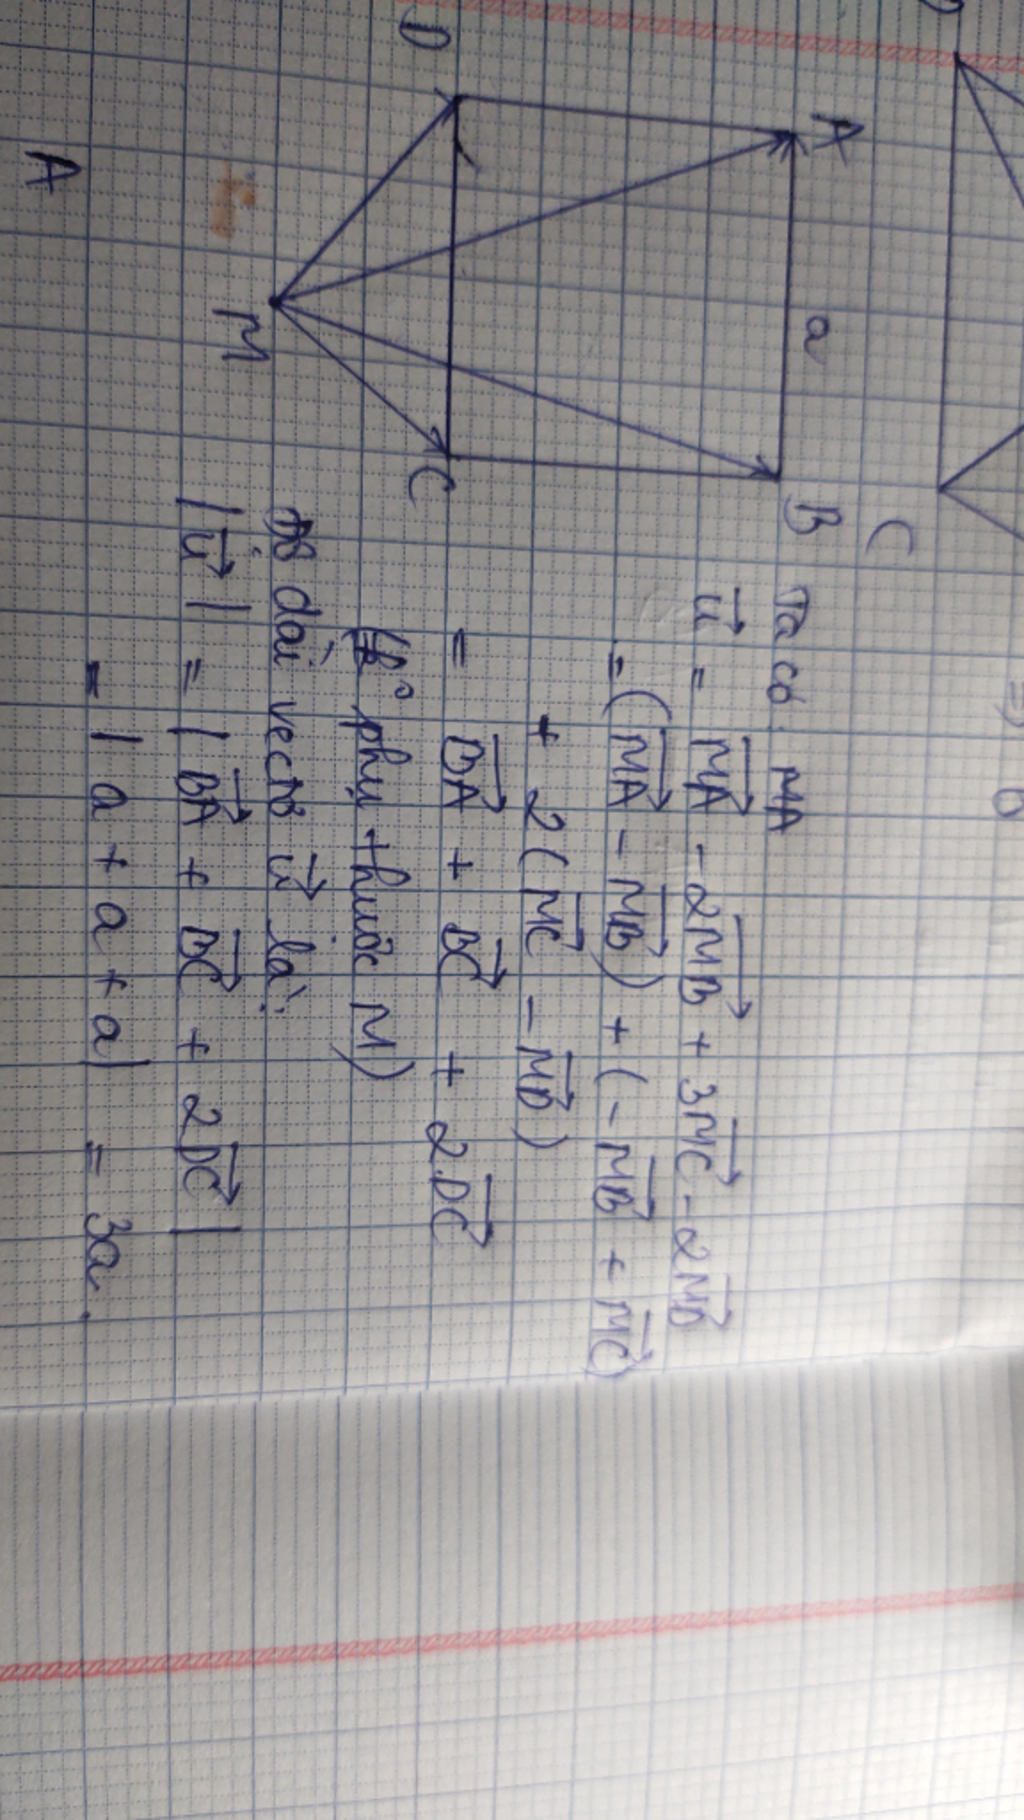 D
A
a
B
C
M
C
A
Ta có: MA
u⃗ = M⃗A⃗ - 2M⃗B⃗ + 3M⃗C⃗ - 2M⃗D⃗
= (M⃗A⃗ - M⃗B⃗) + (-M⃗B⃗ + M⃗C⃗)
+ 2(M⃗C⃗ - M⃗D⃗)
= B⃗A⃗ + B⃗C⃗ + 2D⃗C⃗
phụ thuộc M)
Độ dài vectơ u⃗ là:
|u⃗| = |B⃗A⃗ + B⃗C⃗ + 2D⃗C⃗|
= |a + a + a| = 3a.